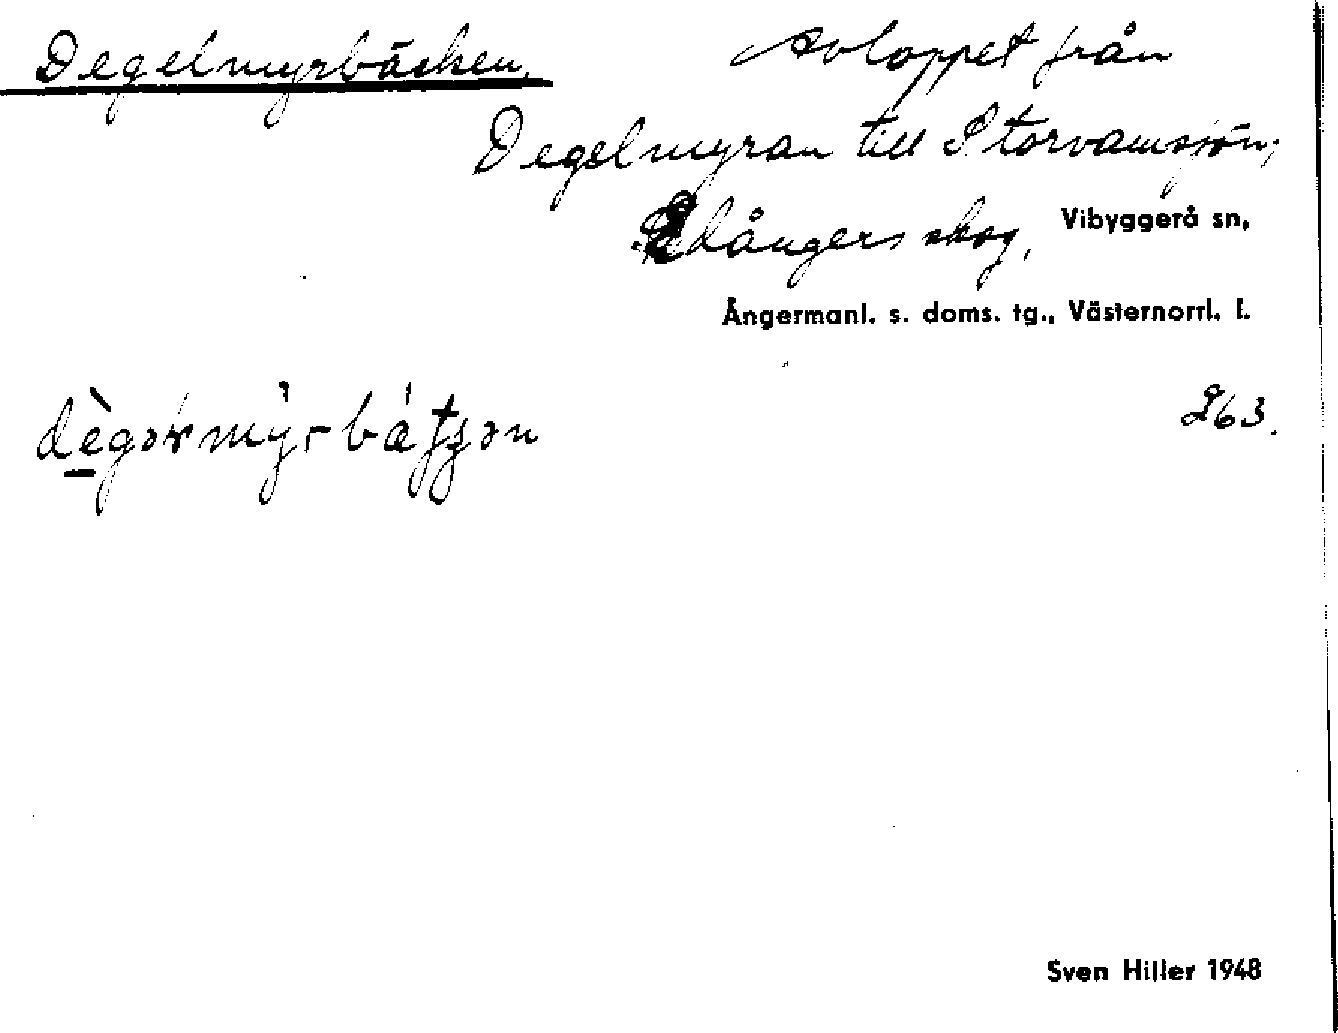 Degelmyrbäcken,
Avloppet från
Degelmyran till Storvamsjön,
Edångers skog, Vibyggerå sn,
Ångermanl. s. doms. tg., Västernorrl. l.
263.
Sven Hiller 1948